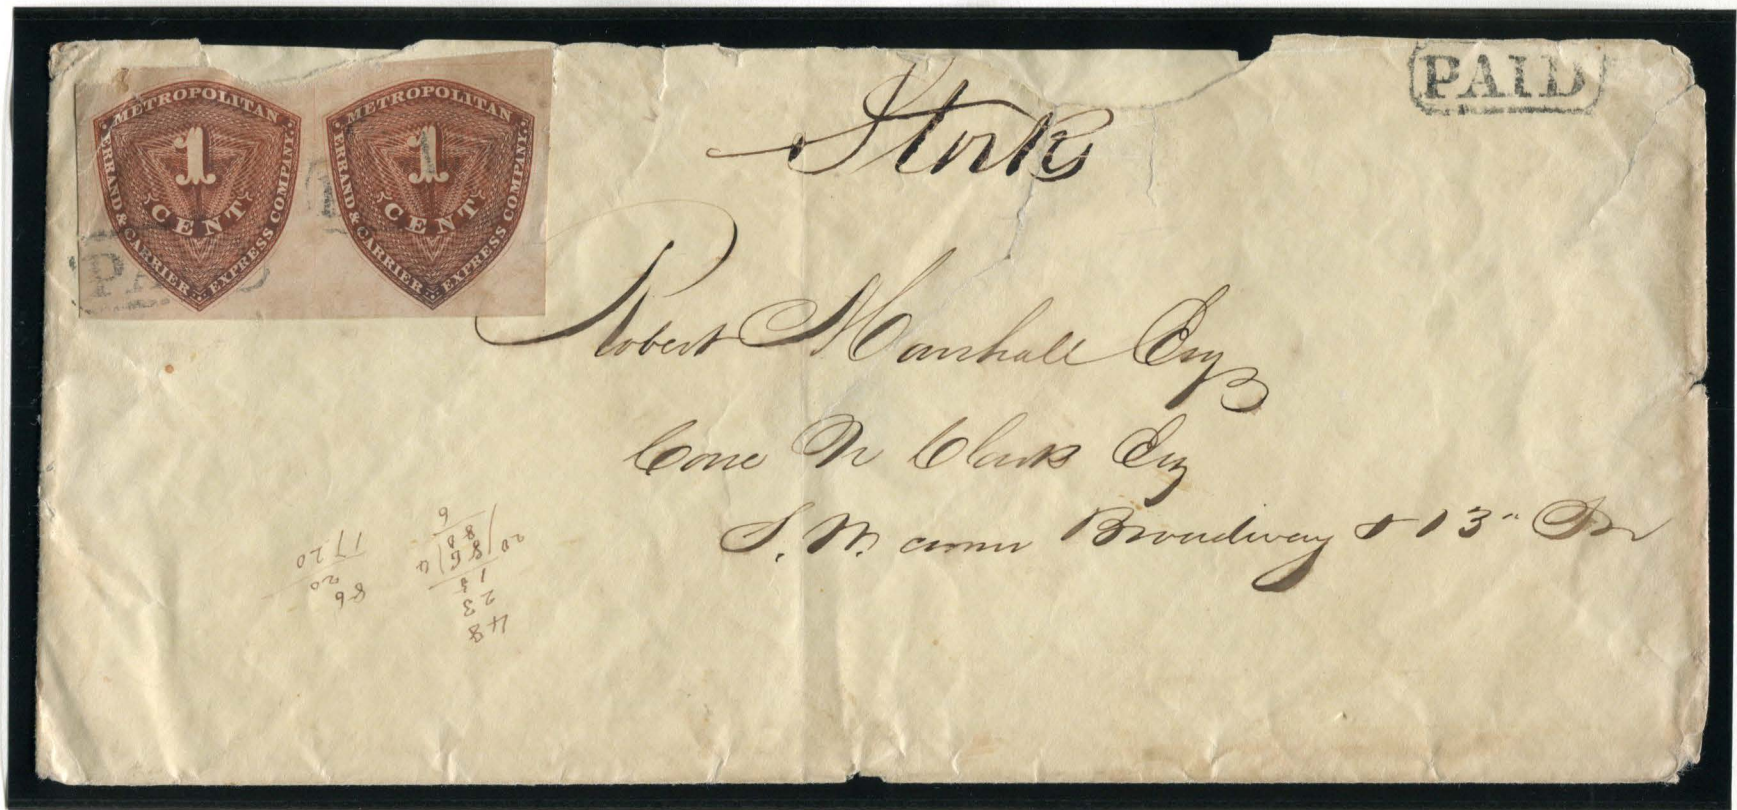 METROPOLITAN
ERRAND & CARRIER EXPRESS COMPANY.
1
CENT
METROPOLITAN
ERRAND & CARRIER EXPRESS COMPANY.
1
CENT
PAID
PAID
Robert Marshall Esq
Care N Clark Esq
S. W. corner Broadway & 13th St
48
23
15
20/86(4
88
6
86
20
1720